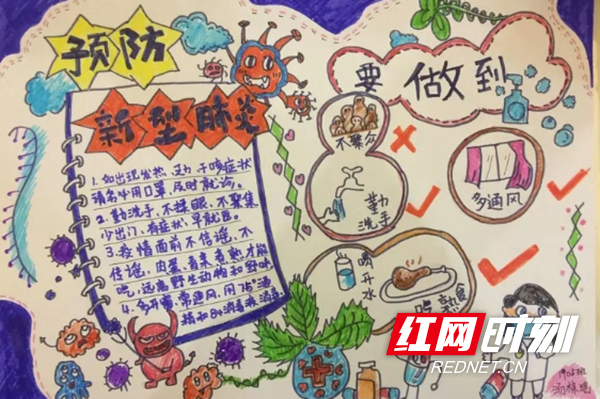 预防
新型肺炎
要做到
1.如出现发热、乏力、干咳症状
请名中用口罩,及时就诊。
2.勤洗手,不揉眼,不聚集
少出门,有症状,早就医。
3.疫情面前不信谣,不
传谣,肉蛋、青菜煮熟才能
吃,远离野生动物和野味
4.多消毒,常通风,用75°酒
精和84消毒液消毒
不聚众
勤
洗手
多通风
喝开
水
吃熟食
红网时刻
REDNET.CN
1905班